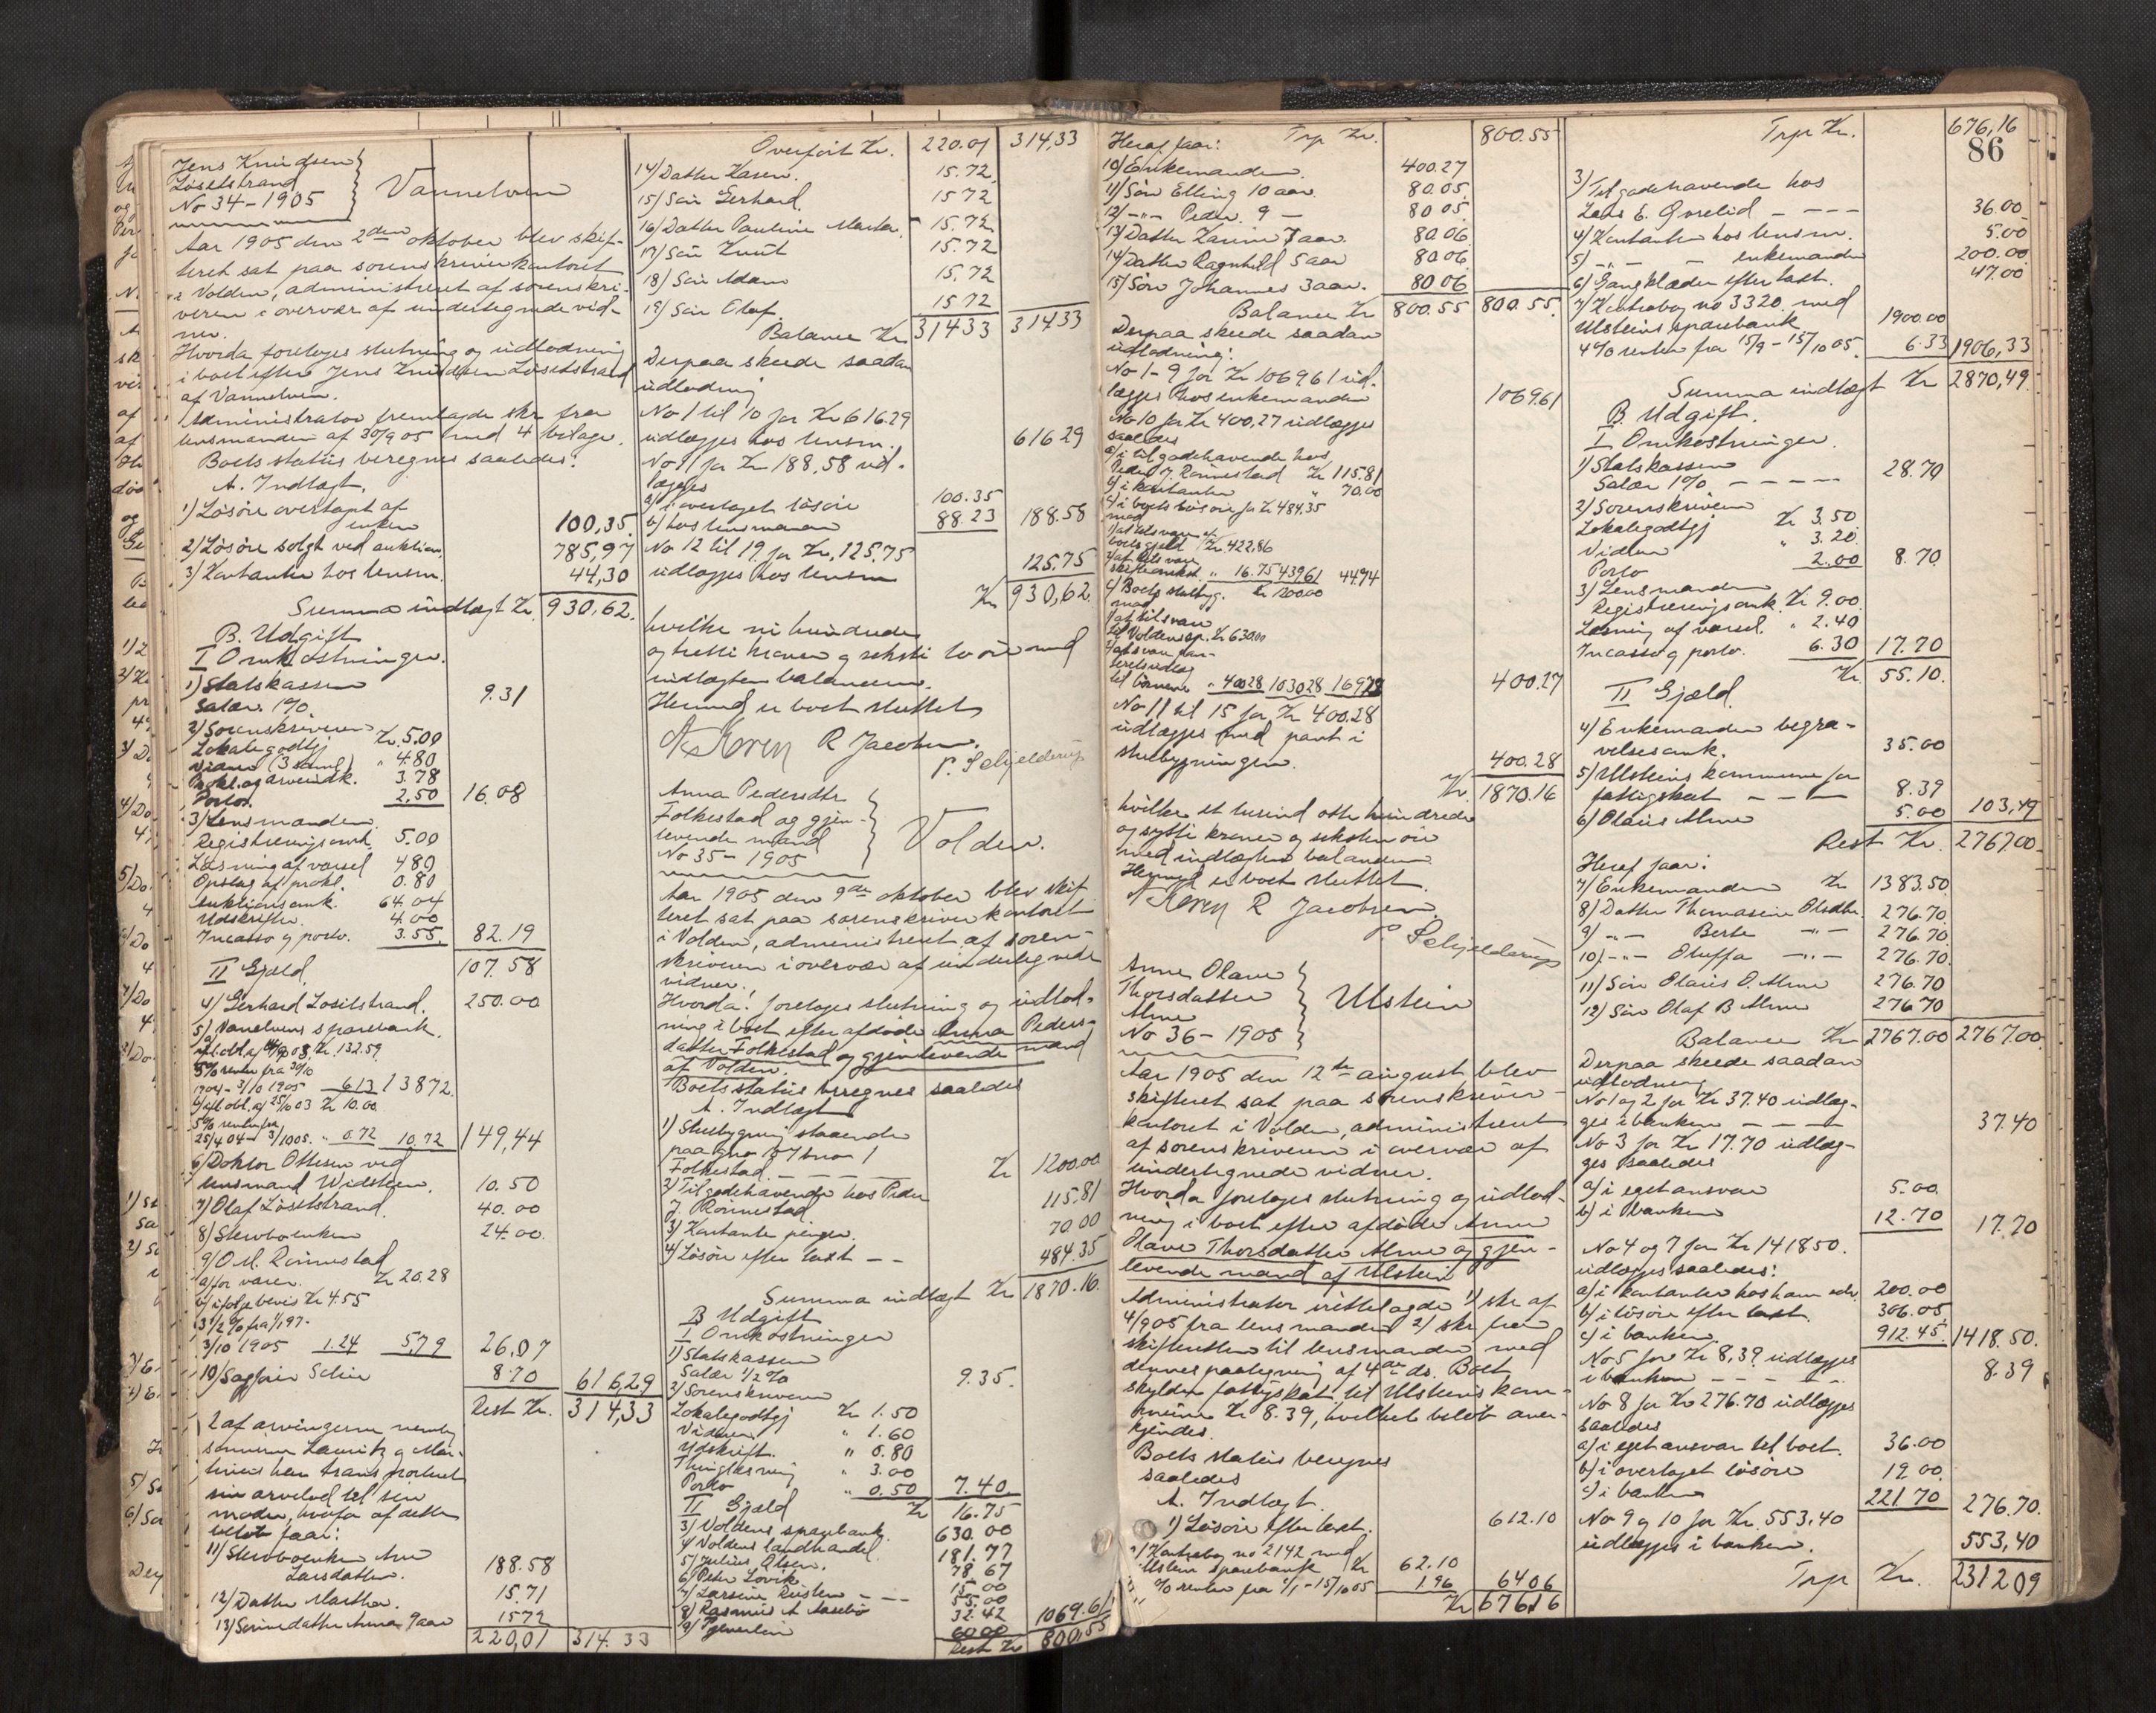 Jens Knudsen
Løsetstrand
No 34 - 1905
Vannelven
Aar 1905 den 2den oktober blev skif-
teret sat paa sorenskriverkontoret
i Volden, administreret af sorenskri-
veren i overvær af undertegnede vid-
ner.
Hvorda foretoges slutning og udlodning
i boet efter Jens Knudsen Løsetstrand
af Vannelven.
Administrator fremlagde skr. fra
lensmanden af 30/9 05 med 4 bilage.
Boets status beregnes saaledes:
A. Indtægt.
1) Løsøre overtaget af
enken 100,35
2) Løsøre solgt ved auktion 785,97
3) Kontanter hos lensm. 44,30
Summa indtægt Kr. 930,62.
B. Udgift
I Omkostninger.
1) Statskassen
Salær 1% 9.31
2) Sorenskriveren
Lokalegodtgj Kr. 5.00
Vidner (3 saml) " 4.80
Prokl. og arveindk. 3.78
Porto. 2.50 16.08
3) Lensmanden.
Registreringsomk. 5.00
Læsning af varsel 4.80
Opslag af prokl. 0.80
Auktionsomk. 64.04
Udskrifter. 4.00
Incasso og porto. 3.55. 82.19
107.58
II Gjæld.
4) Gerhard Løsetstrand. 250.00
5) Vanelvens sparebank.
132.59
5% renter fra 30/10
1904 - 3/10 1905 6.13 138.72
b) ifl. obl. af 25/10 03 Kr 10.00
5% renter fra
25/4 04 - 3/10 05. " 0.72 10.72 149,44
6) Doktor Ottesen ved
lensmand Widsteen. 10.50
7) Olaf Løsetstrand. 40.00
8) Sterboenken 24.00
9) O. M. Rønnestad
a) for varer. Kr 20.28
b) ifølge bevis Kr 4.55
3 1/2 % fra 1/1 97 -
3/10 1905 1.24 5.79 26.07
10) Sagfører Schie 8.70 616,29
Rest Kr. 314,33
2 af arvingerne nemlig
sønnerne Lauritz og Mar-
tinus har transporteret
sin arvelod til sin
moder, hvorfor af dette
beløb faar:
11) Sterboenken Ane
Larsdatter. 188.58
12) Datter Marthe. 15.71
13) Sønnedatter Anna 9 aar 15 72
220,01 314.33
Overført Kr. 220.01 314,33
14) Datter Karen. 15.72
15) Søn Gerhard. 15 72
16) Datter Pauline Marta. 15.72
17) Søn Knut 15.72
18) Søn Adam 15.72
19) Søn Olaf. 15 72
Balance Kr. 314 33 314 33
Derpaa skede saadan
udlodning
No 1 til 10 for Kr 616.29
udlægges hos lensm. 616 29
No 11 for Kr 188,58 ud-
lægges
a) i overtaget løsøre 100.35
b) hos lensmanden 88.23 188.58
No 12 til 19 for Kr. 125.75
udlægges hos lensm 125.75
Kr. 930,62.
hvilke ni hundrede
og tretti kroner og seksti to øre med
indtægten balancerer.
Hermed er boet sluttet
Koren R Jacobsen.
P. Schjelderup
Anna Pedersdtr
Folkestad og gjen-
levende mand
No 35 - 1905
Volden.
Aar 1905 den 9de oktober blev skif-
teret sat paa sorenskriverkontoret
i Volden, administreret af soren-
skriveren i overvær af undertegnede
vidner.
Hvorda! foretoges slutning og udlod-
ning i boet efter afdøde Anna Peders-
datter Folkestad og gjenlevende mand
af Volden.
Boets status beregnes saaledes
A. Indtægt
1) Stuebygning staaende
paa gno 37 bno 1
Folkestad. Kr 1200.00
2) Tilgodehavende hos Peder
J. Rønnestad 115.81
3) Kontante penger. 70.00
4) Løsøre efter taxt - - 484.35
Summa indtægt Kr 1870.16.
B Udgift
I Omkostninger
1) Statskassen
Salær 1/2 % 9.35.
2) Sorenskriveren
Lokalegodtgj Kr 1.50
Vidner. " 1.60
Udskrift. " 0.80
Thinglæsning " 3.00
Porto " 0.50 7.40
Kr 16.75
II Gjæld
3) Voldens sparebank. 630.00
4) Voldens landhandel. 181.77
5) Julius Olsen. 78 67
6) Peter Lovik 15 00
7) Larsine Reiten - - - 55.00
8) Rasmus A Aasebø 32.42
9) 60 00 1069.61
Rest Kr 800,55
Heraf faar: Trp Kr. 800.55
10) Enkemanden 400.27
11) Søn Elling 10 aar 80.05.
12) -"- Peder. 9 - 80 05.
13) Datter Karine 7 aar. 80.06
14) Datter Ragnhild 5 aar 80 06
15) Søn Johannes 3 aar. 80 06
Balance Kr 800.55 800.55.
Derpaa skede saadan
udlodning:
No 1 - 9 for Kr 1069 61 ud-
lægges hos enkemanden 1069.61
No 10 for Kr 400,27 udlægges
saaledes
a) i tilgodehavende hos
Peder J. Rønnestad Kr 115.81
b) i kontanter " 70.00
c) i boets løsøre for Kr 484.35
mod
1) at tilsvare af
boets gjæld Kr. 422.86
2) at tilsvare
skifteomkost. " 16.75 439 61 44.74
c) Boets stuebyg. Kr 1200.00
mod
1) at tilsvare
til Voldens sp. Kr 630.00
2) at svare pan-
teretsudlæg
til børnene " 400 28 1030 28 169 72 400.27
No 11 til 15 for Kr 400.28
udlægges med pant i
stuebygningen. 400.28
Kr. 1870.16
hvilke et tusind otte hundrede
og sytti kroner og seksten øre
med indtægten balancerer
Hermed er boet sluttet.
Koren R Jacobsen.
P. Schjelderup
Anne Olave
Thorsdatter
Alme
No 36 - 1905
Ulstein
Aar 1905 den 12te august blev
skifteret sat paa sorenskriver-
kontoret i Volden, administreret
af sorenskriveren i overvær af
undertegnede vidner.
Hvorda foretoges slutning og udlod-
ning i boet efter afdøde Anne
Olave Thorsdatter Alme og gjen-
levende mand af Ulstein
Administrator irettelagde 1) skr af
4/9 05 fra lensmanden 2) skr fra
skifteretten til lensmanden med
dennes paategning af 4de ds. Boet
skylder fattigskat til Ulsteins kom-
mune Kr 8.39, hvilket beløb aner-
kjendes.
Boets status beregnes
saaledes
A. Indtægt.
1) Løsøre efter taxt. 612.10
2) Kontrabog no 2142 med
Ulstein sparebank Kr 62.10
% renter fra 1/1 - 15/10 05 1.96 64 06
Kr 676.16
Trp Kr. 676,16
86
3) Tilgodehavende hos
Lars E. Qvrelid - - - - 36.00
4) Kontanter hos lensm. 5.00
5) -"- - enkemanden 200.00
6) Gangklæder efter taxt. 47.00
7) Kontrabog no 3320 med
Ulsteins sparebank 1900.00
4 % renter fra 15/9 - 15/10 05. 6.33 1906,33
Summa indtægt Kr 2870,49
B. Udgift.
I Omkostninger.
1) Statskassen
Salær 1% - - - - - 28.70
2) Sorenskriveren
Lokalegodtgj Kr 3.50
Vidner " 3.20
Porto 2.00 8.70
3) Lensmanden
Registreringsomk. Kr 9.00
Læsning af varsel. " 2.40
Incasso og porto. 6.30 17.70
Kr. 55.10.
II Gjæld.
4) Enkemanden begra-
velsesomk. 35.00
5) Ulsteins kommune for
fattigskat - - - 8.39
6) Olaus Alme 5.00 103,49
Rest Kr. 2767.00
Heraf faar:
7) Enkemanden Kr 1383.50
8) Datter Thomasine Olsdtr. 276.70
9) -"- Berte -"- 276.70
10) -"- Oluffa -"- 276.70.
11) Søn Olaus O. Alme 276.70
12) Søn Olaf B Alme 276 70
Balance Kr 2767.00 2767.00
Derpaa skede saadan
udlodning
No 1 og 2 for Kr 37.40 udlæg-
ges i banken - - - 37.40
No 3 for Kr 17.70 udlæg-
ges saaledes
a) i eget ansvar 5.00.
b) i banken 12.70 17.70
No 4 og 7 for Kr 1418 50.
udlægges saaledes:
a) i kontanter hos ham selv. 200.00
b) i løsøre efter taxt. 306.05
c) i banken. 912.45. 1418.50.
No 5 for Kr 8,39 udlægges
i banken - - - - - 8.39
No 8 for Kr 276.70 udlægges
saaledes
a) i eget ansvar til boet. 36.00
b) i overtaget løsøre 19 00.
c) i banken 221.70 276.70.
No 9 og 10 for Kr. 553.40
udlægges i banken. 553,40
Trp Kr. 2312 09